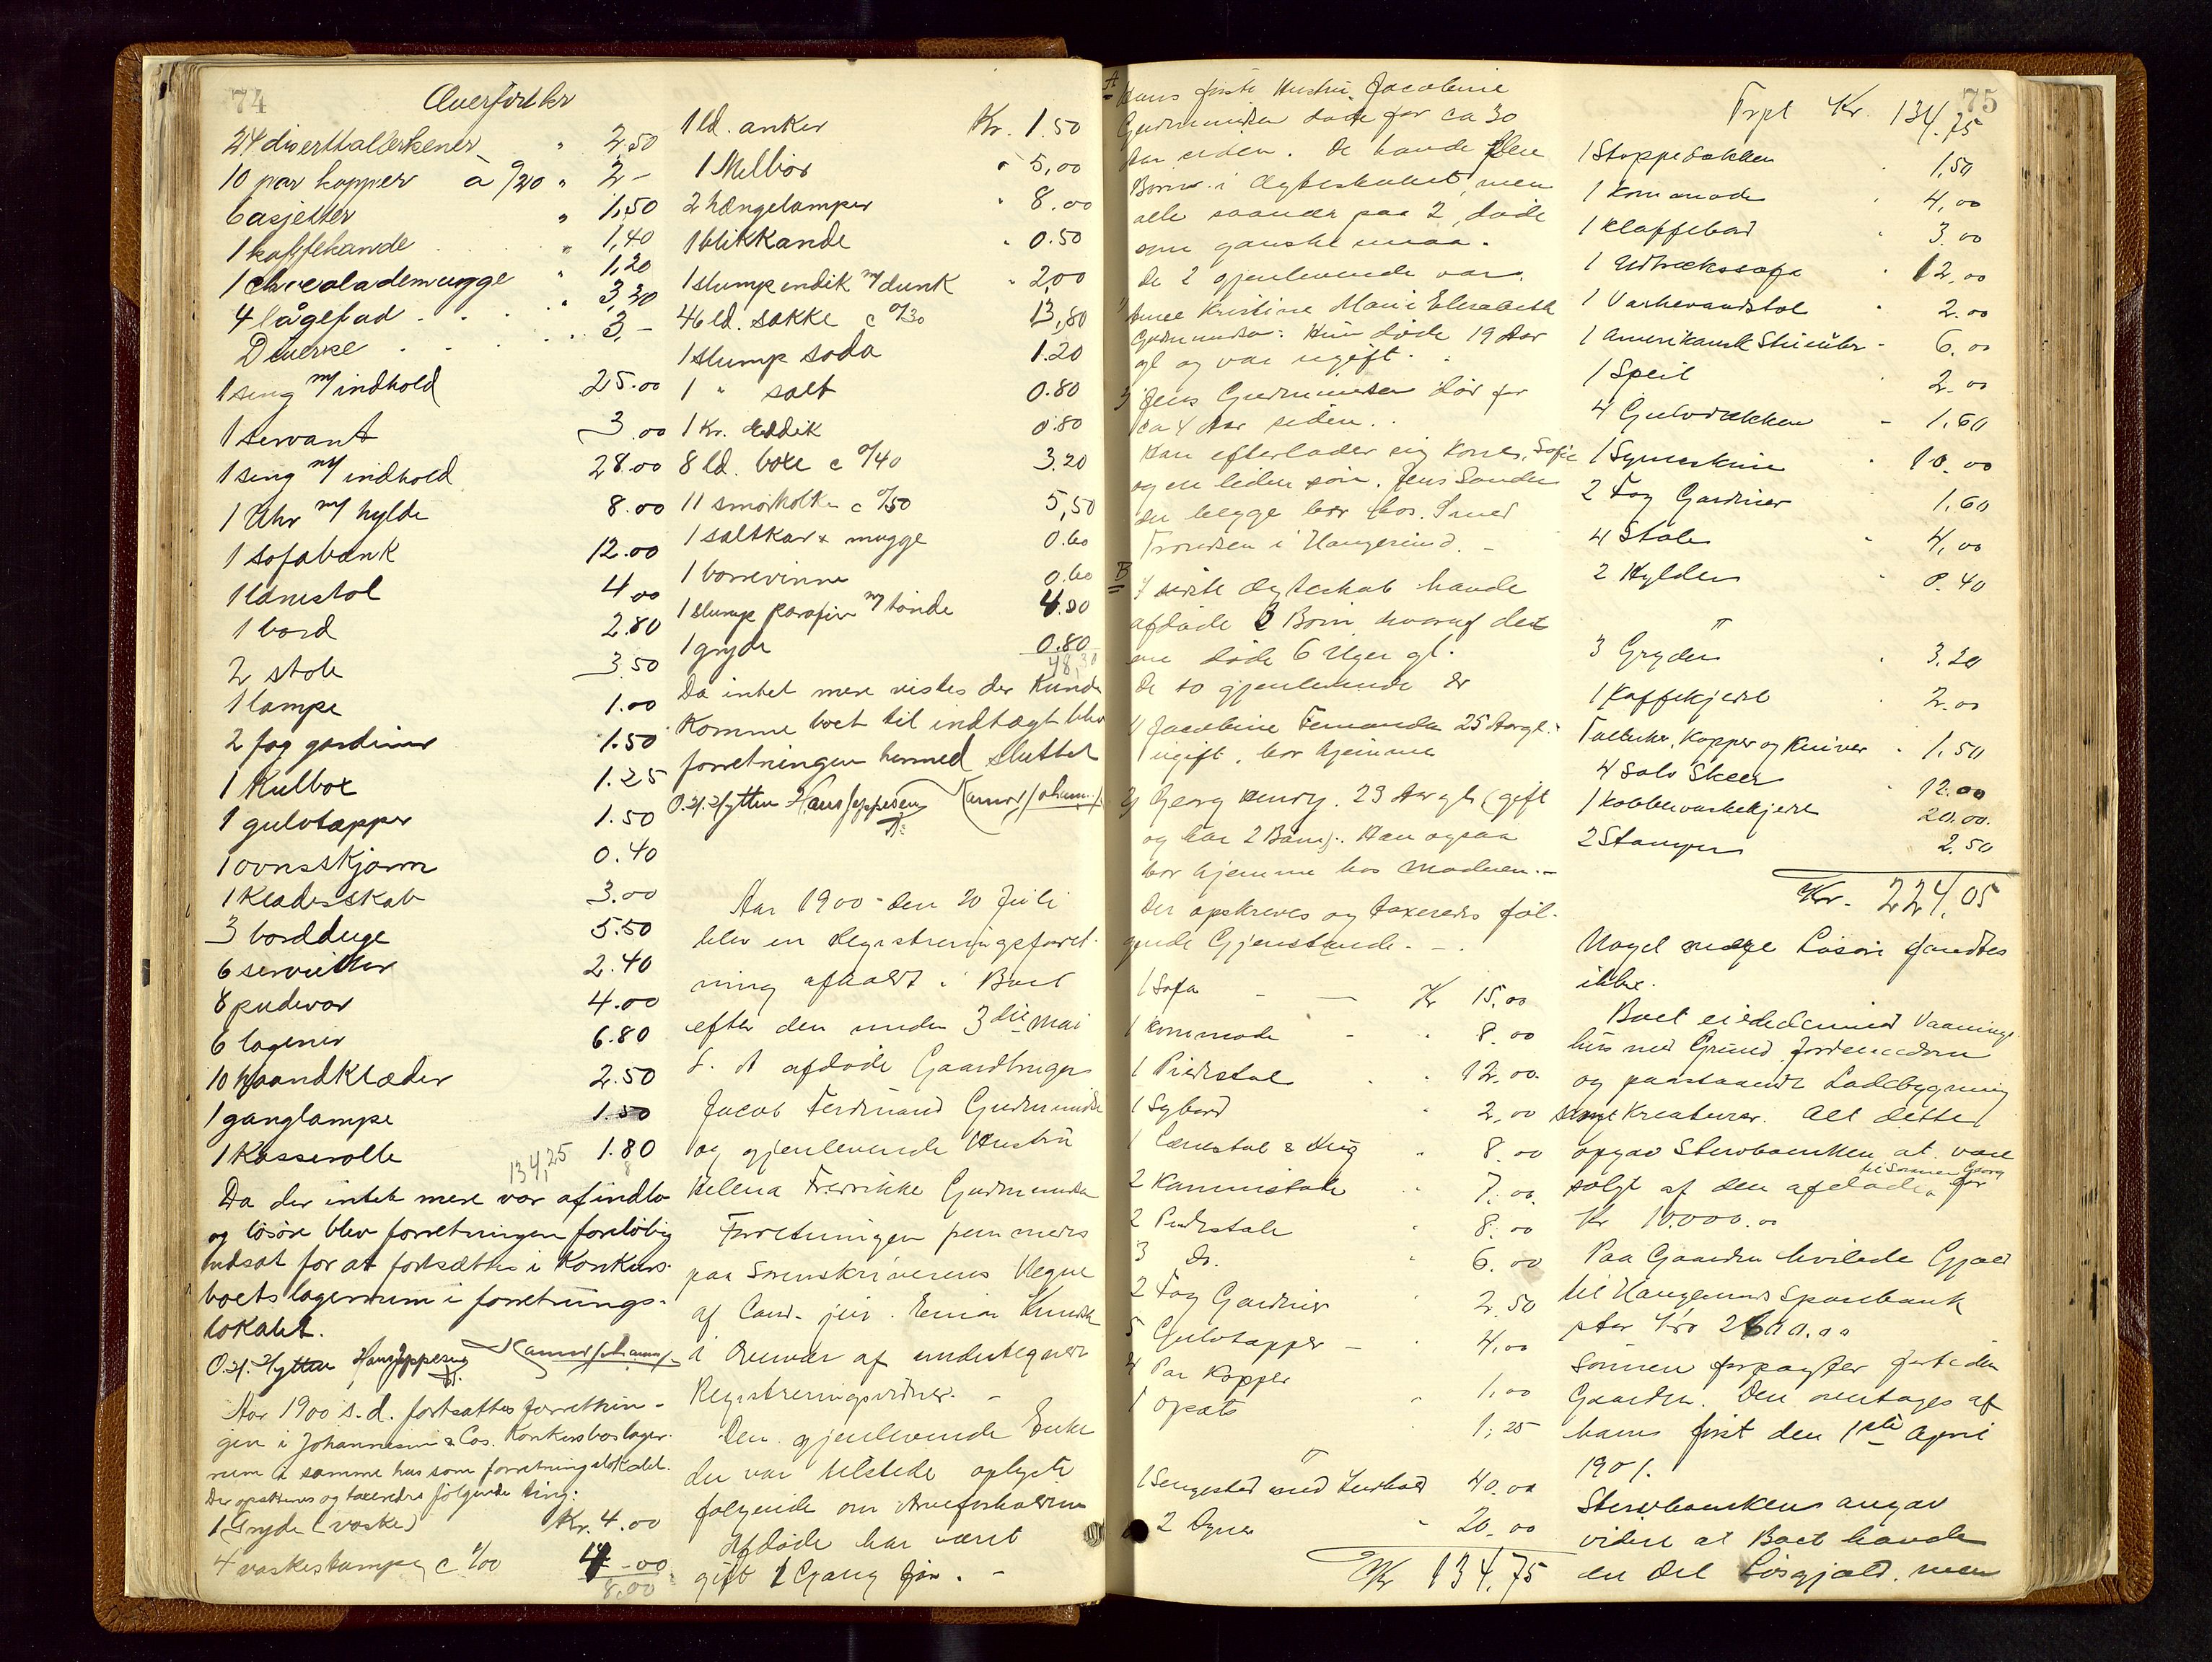 74
Overført kr
24 diserttallerkener " 2,50
10 par kopper à 0/20 " 2 -
6 asjetter " 1,50
1 kaffekande " 1,40
1 chocolademugge " 1,20
4 lågefad " 3,20
Diverse " 3,-
1 seng m/ indhold 25.00
1 servant 3.00
1 seng m/ indhold 28.00
1 Uhr m/ hylde 8.00
1 sofabænk 12.00
1 lænestol 4.00
1 bord 2.80
2 stole 3.50
1 lampe 1.00
2 fag gardiner 1.50
1 Kulbox 1.25
1 gulvtæppe 1.50
1 ovnsskjærm 0.40
1 Klædesskab 3.00
3 bordduge 5.50
6 servietter 2.40
8 pudevar 4.00
6 lagener 6.80
10 haandklæder 2.50
1 ganglampe 1.50
1 Kasserolle 1.80
134,25
Da der intet mere var af indbo
og løsøre blev forretningen foreløbig
udsat for at fortsættes i Konkurs-
boets lagerrum i forretnings-
lokalet.
O. H. Hytten Hans Jeppesen
Aar 1900 s.d. fortsattes forretnin-
gen i Johannesen & Cos. Konkursbos lager-
rum i samme hus som forretningslokalet.
Der opskreves og taxeredes følgende ting:
1 Gryde (vaske) Kr. 4.00
4 vaskestamper c 1/00 4.00
8,00
1 ld. anker Kr. 1.50
1 Melbør " 5,00
2 hængelamper " 8.00
1 blikkande " 0.50
1 slump eddik m/ dunk " 2,00
46 ld. sække c 0/30 13,80
1 slump soda 1.20
1 " salt 0.80
1 Kr. Eddik 0.80
8 ld. boxe c 0/40 3.20
11 smørholker c 0/50 5,50
1 saltkar & mugge 0.60
1 borrevinne 0.60
1 slump parafin m/ tønde 4.00
1 gryde 0.80
48,30
Da intet mere vistes der Kunde
Komme boet til indtægt blev
forretningen hermed sluttet
O. H. Hytten Hans Jeppesen
Aar 1900 den 20 Juli
blev en Registreringsforret-
ning afholdt i Boet
efter den under 3die Mai
d. A afdøde Gaardbruger
Jacob Ferdinand Gudmundsen
og gjenlevende Hustru
Helena Fredrikke Gudmundsen
Forretningen fremmedes
paa Sorenskriverens Vegne
af Cand. jur. Einar
i Overvær af undertegnede
Registreringsvidner. -
Den gjenlevende Enke
der var tilstede oplyste
følgende om Arveforholdene
Afdøde har været
gift 1 Gang før. -
75
A
Hans første Hustru, Jacobine
Gudmundsen døde for ca 30
Aar siden. De havde flere
Børn i Ægteskabet, men
alle saanær paa 2, døde
som ganske smaa.
De 2 gjenlevende var:
1) Anne Kristine Marie Elisabeth
Gudmundsen: Hun døde 19 Aar
gl og var ugift.
2) Jens Gudmundsen død for
ca 4 Aar siden.
Han efterlader sig Kone, Sofie
og en liden søn, Jens Sander
der begge bor hos Smed
Trondsen i Haugesund. -
B
I sidste Ægteskab havde
afdøde 3 Børn hvoraf det
ene døde 6 Uger gl.
De to gjenlevende er
1) Jacobine Fernanda 25 Aar gl.
ugift, bor hjemme
2) Georg Henry. 23 Aar gl. (gift
og har 2 Børn). Han ogsaa
bor hjemme hos Moderen. -
Der opskreves og taxeredes føl-
gende Gjenstande. -
1 Sofa Kr 15,00
1 Kommode " 8.00
1 Pidestal " 12.00
1 Sybord " 2,00
1 Lænestol & Krig " 8.00
2 Kurvestole " 7.00
2 Pidestale " 8.00
3 do. " 6.00
2 Fag Gardiner " 2.50
5 Gulvtæpper " 4,00
4 Par Kopper " 1,00
1 Opsats " 1,25
1 Sengested med Indhold 40.00
2 Dyner " 20.00
Kr 134,75
Trpt Kr. 134,75
1 Stoppedækken 1,50
1 Kommode 4,00
1 Klaffebord 3.00
1 Udtrækssofa 12,00
1 Vaskevandstol 2.00
1 Amerikansk Stueuhr 6.00
1 Speil 2.00
4 Gulvdækken 1.60
1 Symaskine 10.00
2 Fag Gardiner 1,60
4 Stole 4,00
2 Hylder 0.40
3 Gryder 3.20
1 Kaffekjedel 2.00
Tallerker, Kopper og Kniver 1,50
4 Sølv Skeer 12.00
1 Kobbervaskekjedel 20.00
2 Stamper 2.50
Kr. 224,05
Noget mere Løsøre fandtes
ikke.
Boet eiede Vaanings-
hus med Grund, Jordeiendom
og paastaaende Ladebygning
samt Kreaturer. Alt dette
opgav Stervboenken at være
til Sønnen Georg
solgt af den afdøde for
Kr 10.000.00
Paa Gaarden hvilede Gjæld
til Haugesunds Sparebank
stor Kr 2600.00
Sønnen forpagter for tiden
Gaarden. Den overtages af
ham først den 1ste April
1901.
Stervboenken angav
videre at Boet havde
en Del Løsgjæld, men